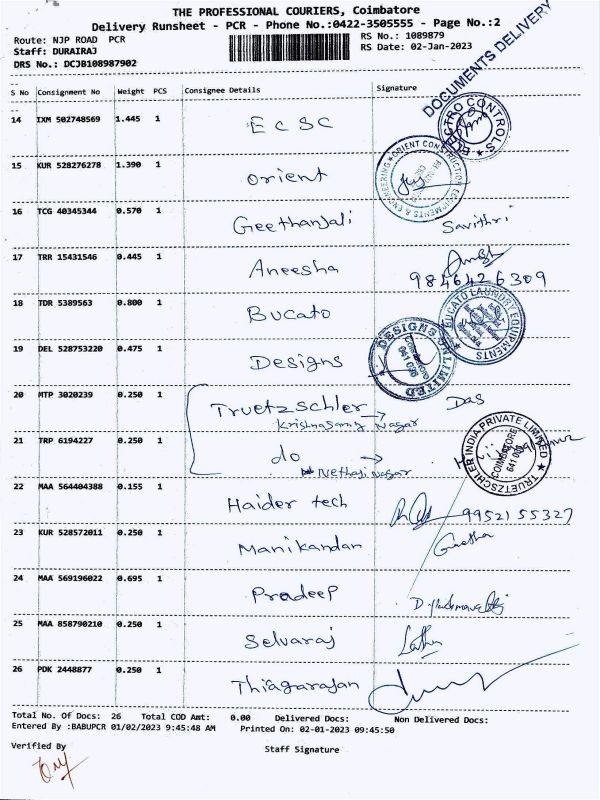 THE PROFESSIONAL COURIERS, Coimbatore
Delivery Runsheet - PCR - Phone No.:0422-3505555 - Page No.:2
Route: NJP ROAD PCR
RS No.: 1089879
Staff: DURAIRAJ
RS Date: 02-Jan-2023
DRS No.: DCJB108987902
DOCUMENTS DELIVERY
S No Consignment No Weight PCS Consignee Details Signature
14 IXM 502748569 1.445 1 ECSC
ELECTRO CONTROLS
15 KUR 528276278 1.390 1 Orient
ORIENT CONSTRUCTION EQUIPMENTS & ENGINEERING
16 TCG 40345344 0.570 1 Geethanjali Savithri
17 TRR 15431546 0.445 1 Aneesha
9846426309
18 TDR 5389563 0.800 1 Bucato
BUCATO LAUNDRY EQUIPMENTS
19 DEL 528753220 0.475 1 Designs
DESIGNS UNLIMITED
COIMBATORE
641 036
20 MTP 3020239 0.250 1 Truetzschler Das
Krishnasamy Nagar
21 TRP 6194227 0.250 1 do
Nethaji Nagar
TRUETZSCHLER INDIA PRIVATE LIMITED
COIMBATORE
22 MAA 564404388 0.155 1 Haider tech 9952155327
23 KUR 528572011 0.250 1 Manikandan Geetha
24 MAA 569196022 0.695 1 Pradeep
25 MAA 858790210 0.250 1 Selvaraj Latha
26 PDK 2448877 0.250 1 Thiagarajan
Total No. Of Docs: 26 Total COD Amt: 0.00 Delivered Docs: Non Delivered Docs:
Entered By :BABUPCR 01/02/2023 9:45:48 AM Printed On: 02-01-2023 09:45:50
Verified By
Staff Signature